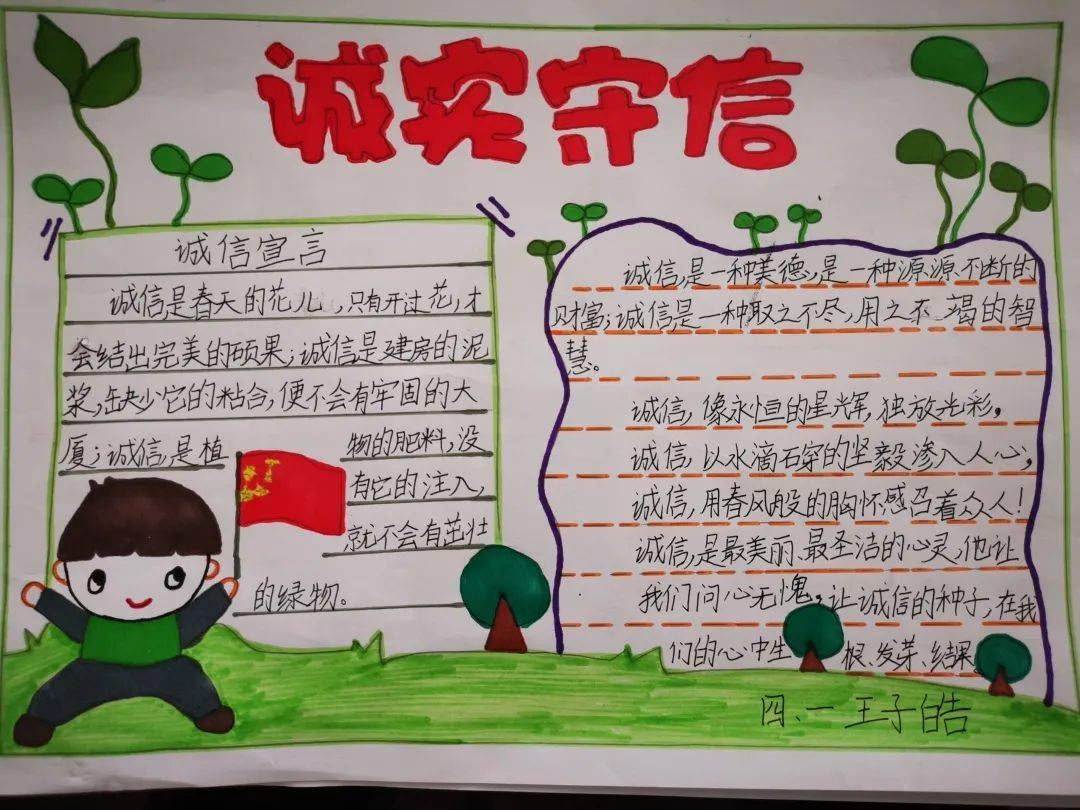 诚实守信
诚信宣言
诚信是春天的花儿，只有开过花，才
会结出完美的硕果；诚信是建房的泥
浆，缺少它的粘合，便不会有牢固的大
厦；诚信，是植物的肥料，没
有它的注入，
就不会有茁壮
的绿物。
诚信，是一种美德，是一种源源不断的
财富；诚信是一种取之不尽，用之不竭的智
慧。
诚信，像永恒的星辉，独放光彩，
诚信，以水滴石穿的坚毅渗入人心，
诚信，用春风般的胸怀感召着众人！
诚信，是最美丽、最圣洁的心灵，他让
我们问心无愧，让诚信的种子，在我
们的心中生根、发芽、结果。
四、一 王子皓